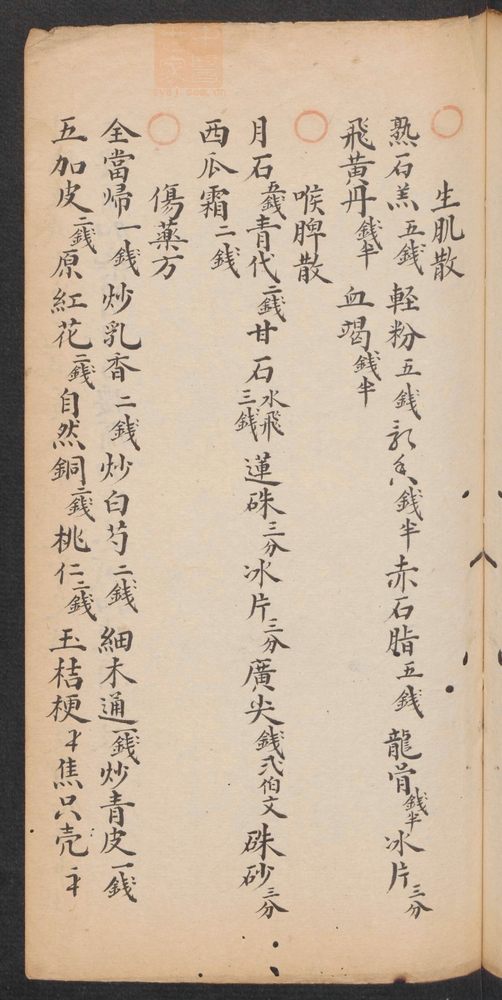 生肌散
熟石羔五錢 輕粉五錢 乳香錢半 赤石脂五錢 龍骨錢半 冰片三分
飛黃丹錢半 血竭錢半
喉脾散
月石五錢 青代二錢 甘石水飛三錢 蓮硃三分 冰片三分 廣尖錢弍伯文 硃砂三分
西瓜霜二錢
傷藥方
全當帰一錢 炒乳香二錢 炒白芍二錢 細木通一錢 炒青皮一錢
五加皮二錢 原紅花二錢 自然銅二錢 桃仁二錢 玉桔梗 焦只壳